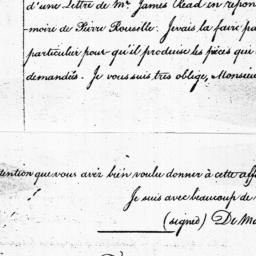 d'une Lettre de Mr. James Read en repon
moire de Pierre Rouselle. Je vais la faire pa
particulier pour qu'il produise les pièces qui
demandés. Je vous suis tres oblige, Monsieu
tention que vous avez bien voulu donner à cette aff
Je suis avec beaucoup de
(signed) De Ma